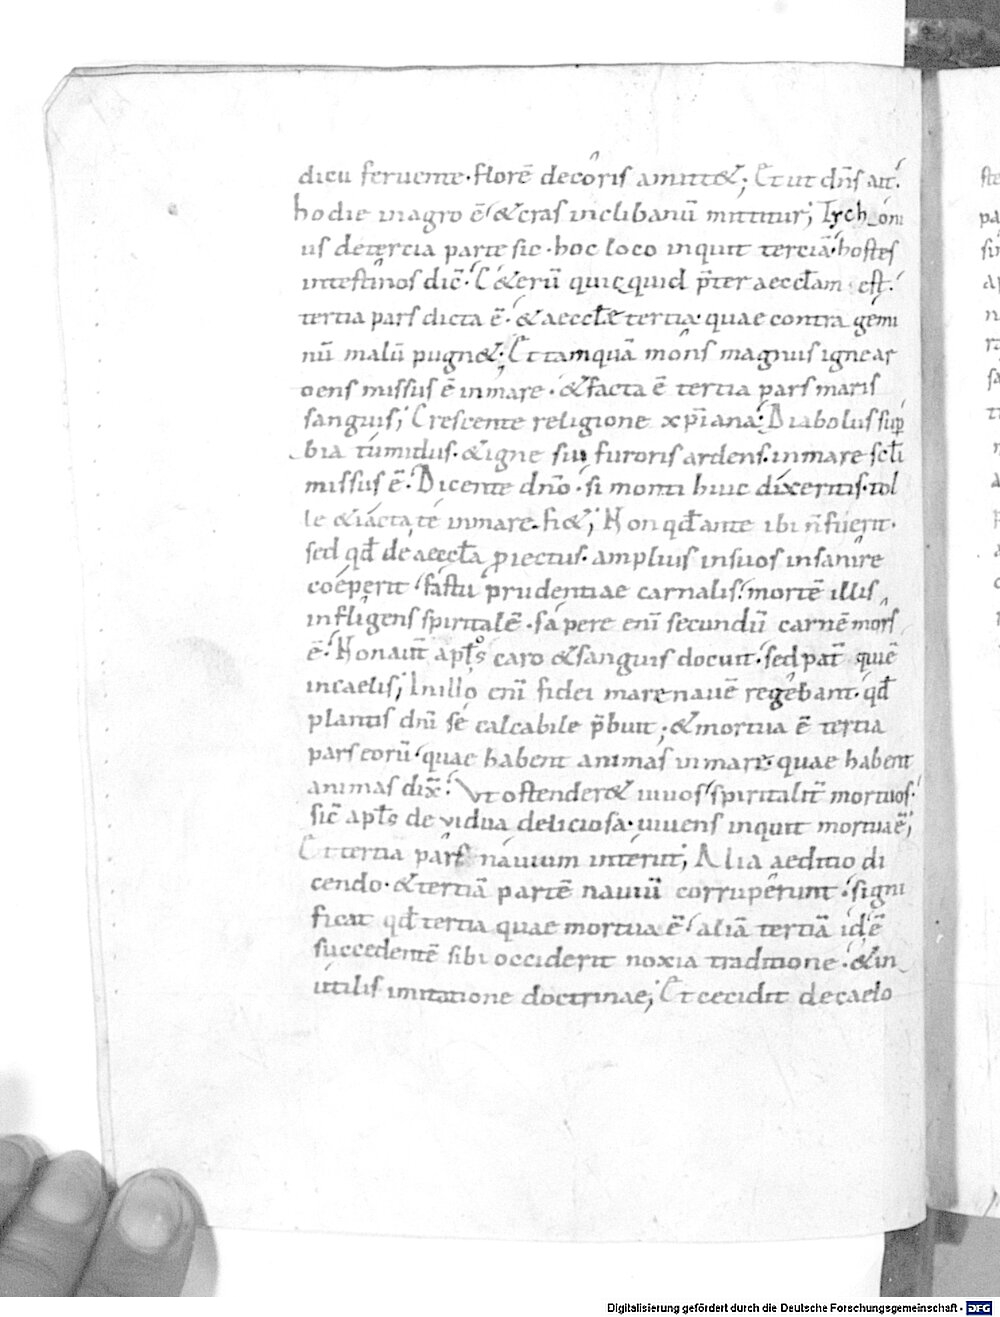 dieu feruente· florē decoris amitt&; Et ut dn̄s ait.
hodie inagro ē· &cras inclibanū mittitur; Tychoni
us detercia parte sic· hoc loco inquit tercia· hostes
intestinos dic̄· C&erū quicquid p̄ter aeccl̄am· est·
tertia pars dicta ē· &aeccl̄ae tertia· quae contra gemi
nū malū pugn&· Et tamquā mons magnus igne ar
dens missus ē inmare· &facta ē tertia pars maris
sanguis; Crescente religione xp̄iana· Diabolus sup̄
bia tumidus· &igne sui furoris ardens· inmare scl̄i
missus ē· Dicente dnō· si monti huic dixeritis· tol
le &iacta te inmare· fi&; Non qđ ante ibi n̄ fuerit·
sed qđ de aeccl̄a ꝓiectus· amplius insuos insanire
coeperit· fastu prudentiae carnalis· mortē illis
infligens spiritalē· sapere enī secundū carnē mors
ē· Non aut̄ apl̄s caro &sanguis docuit· sed pat̄ qui ē
incaelis; Inillo enī fidei mare nauē regebant· qđ
plantis dnī se calcabile p̄buit; &mortua ē tertia
pars eorū· quae habent animas inmare· quae habent
animas dix̄· Vt ostender& uiuos· spiritalit̄ mortuos·
sic̄ apl̄s de vidua deliciosa· uiuens inquit mortua ē;
Et tertia pars nauium interiit; Alia aeditio di
cendo· &tertiā partē nauiū corruperunt· signi
ficat qđ tertia quae mortua ē· aliā tertiā idē
succedentē sibi occiderit noxia traditione· &in
utilis imitatione doctrinae; Et cecidit decaelo
Digitalisierung gefördert durch die Deutsche Forschungsgemeinschaft - DFG